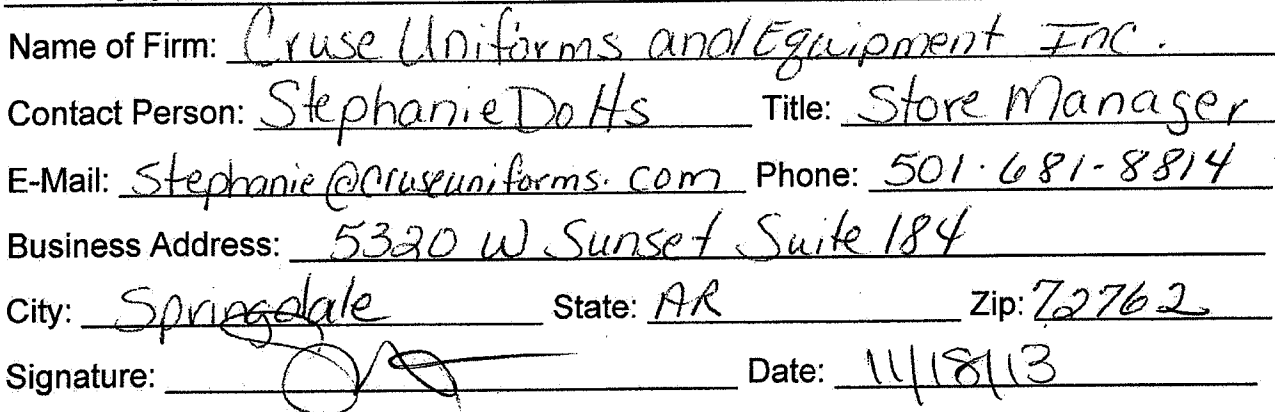 Name of Firm: Cruse Uniforms and Equipment Inc.
Contact Person: Stephanie Dotts Title: Store Manager
E-Mail: Stephanie@cruseuniforms.com Phone: 501-681-8814
Business Address: 5320 W Sunset Suite 184
City: Springdale State: AR Zip: 72762
Signature: Date: 11/18/13